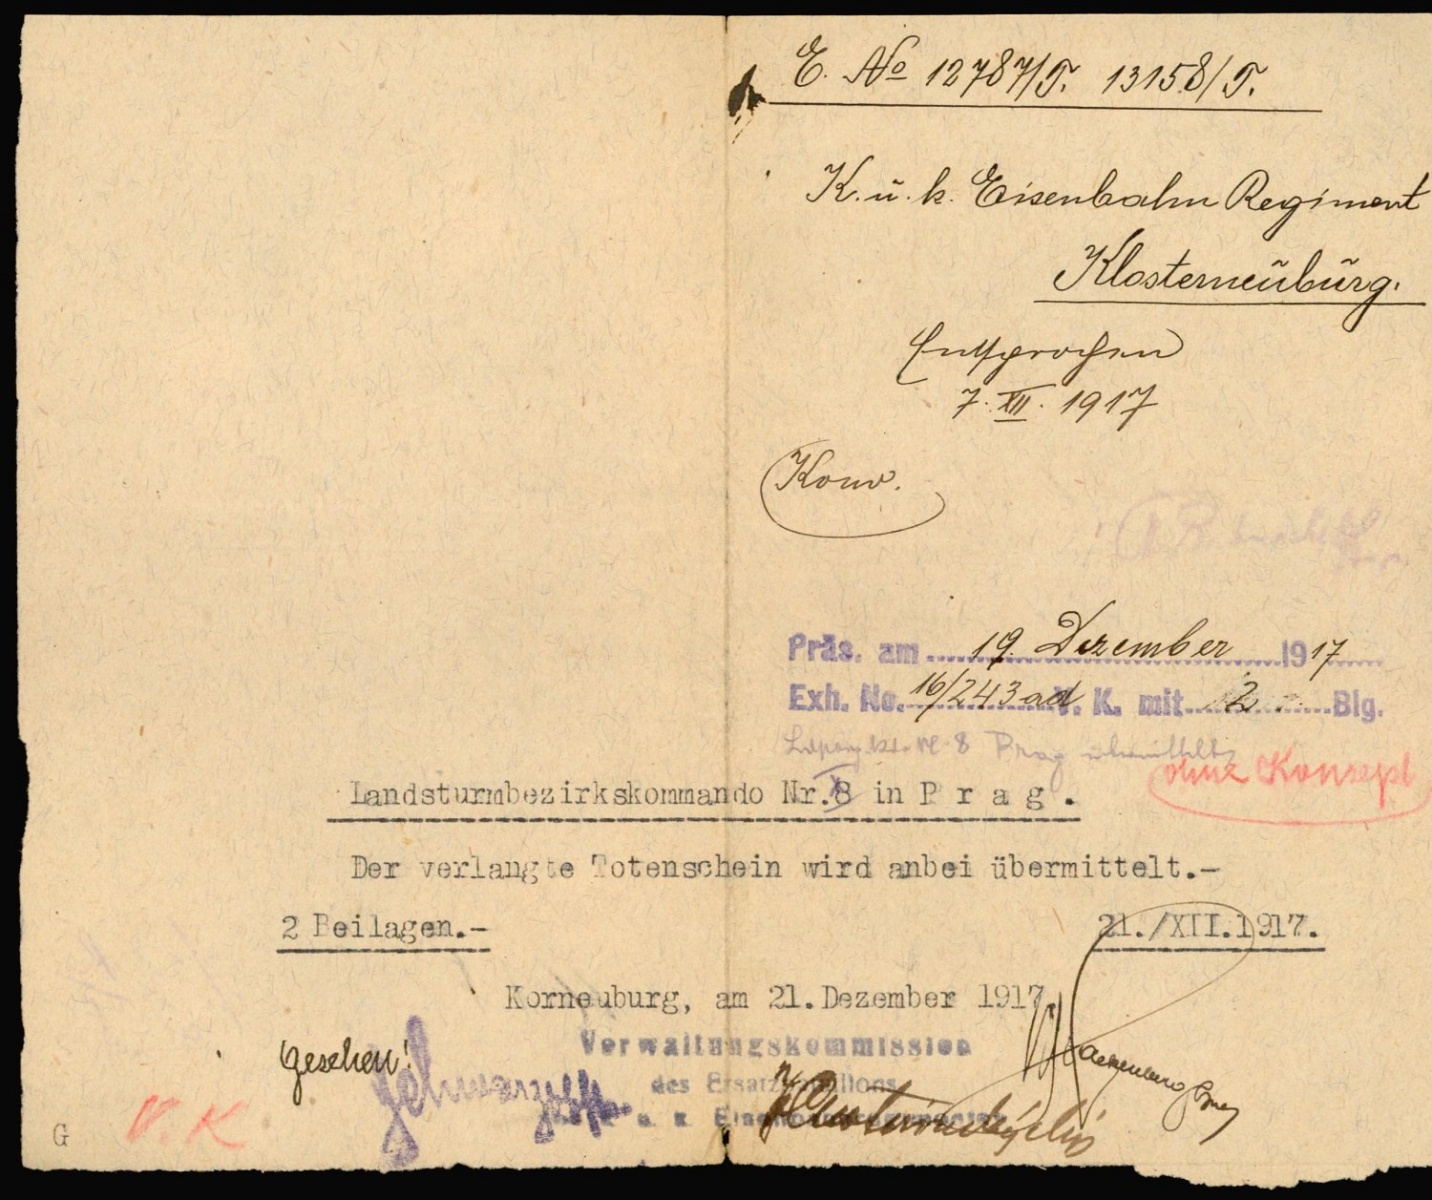 E. No 12787/T. 13158/T.
K. u. k. Eisenbahn Regiment
Klosterneuburg.
Entsprochen
7. XII. 1917
Konv.
Präs. am 19. Dezember 1917
Exh. No. 16/243 ad V. K. mit 2 Blg.
Nr. 8 Prag übermittelt
ohne Konzept
Landsturmbezirkskommando Nr. 8 in P r a g .
Der verlangte Totenschein wird anbei übermittelt.-
2 Beilagen.-
21./XII.1917.
Korneuburg, am 21. Dezember 1917.
Verwaltungskommission
des Ersatzbataillons
gesehen!
V. K
G